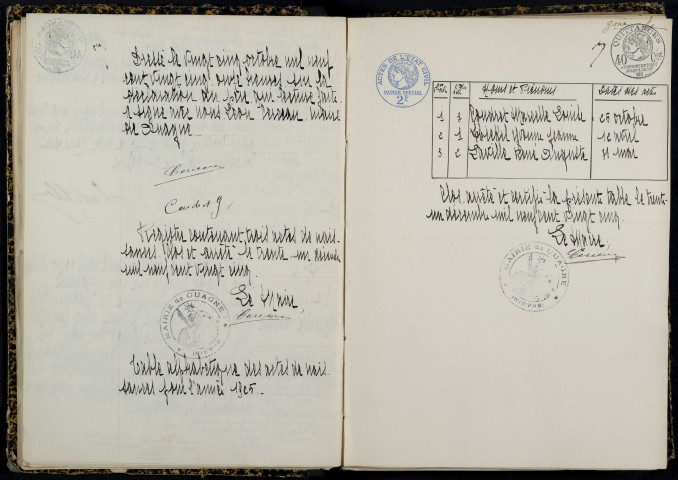 Dressé le vingt cinq octobre mil neuf
cent vingt cinq onze heures sur la
déclaration du père qui lecture faite
a signé avec nous Léon maire
de Ouagne
Registre contenant trois actes de nais-
sances clos et arrêté le trente un décembre
mil neuf cent vingt cinq.
Le Maire,
MAIRIE de OUAGNE
Table alphabétique des actes de nais-
sances pour l'année 1925.
ACTES DE L'ÉTAT CIVIL
PAPIER SPÉCIAL
2F
QUITTANCES
Noms et Prénoms
Dates des actes
1 3 Marcelle Louise 25 octobre
2 1 Yvonne Jeanne 12 avril
3 2 Laville René Auguste 31 mai
Clos arrêté et certifié la présente table le trente-
un décembre mil neuf cent vingt cinq.
Le Maire,
MAIRIE de OUAGNE
(NIÈVRE)